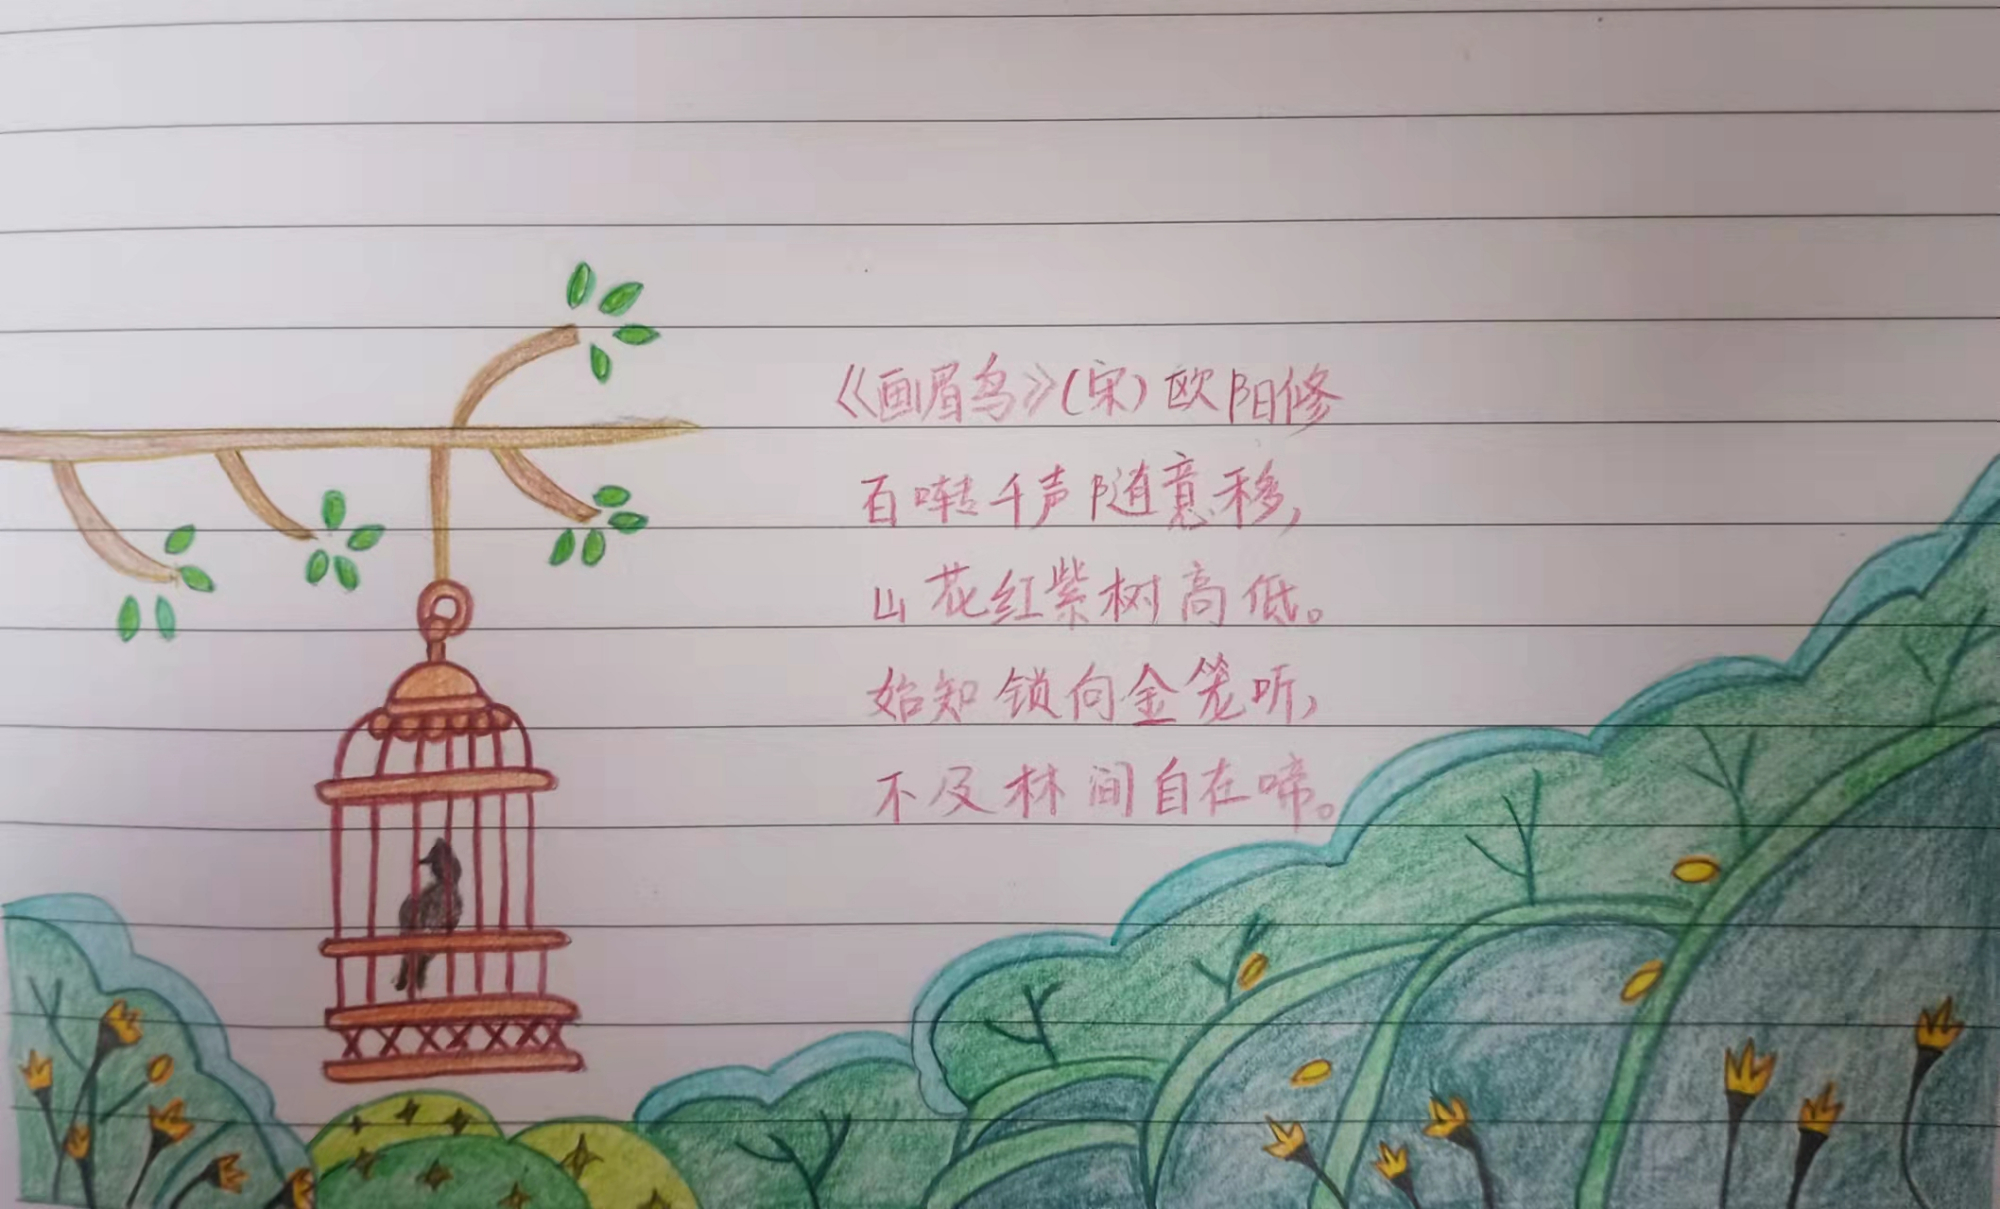 《画眉鸟》(宋)欧阳修
百啭千声随意移,
山花红紫树高低。
始知锁向金笼听,
不及林间自在啼。